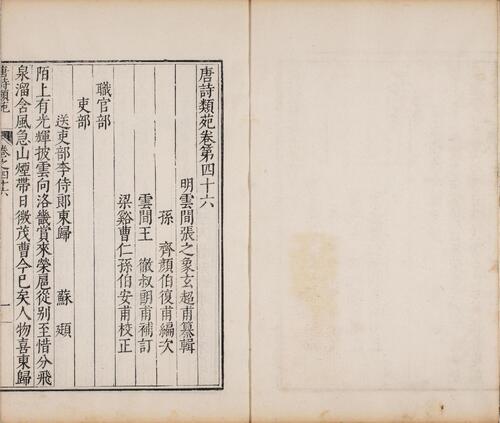 唐詩類苑卷第四十六
明雲間張之象玄超甫纂輯
孫 齊顏伯復甫編次
雲間王 徹叔朗甫補訂
梁谿曹仁孫伯安甫校正
職官部
吏部
送吏部李侍郎東歸 蘇頲
陌上有光輝披雲向洛畿賞來榮扈從别至惜分飛
泉溜含風急山煙帶日微茂曹今已矣人物喜東歸
唐詩類苑
卷之四十六
一